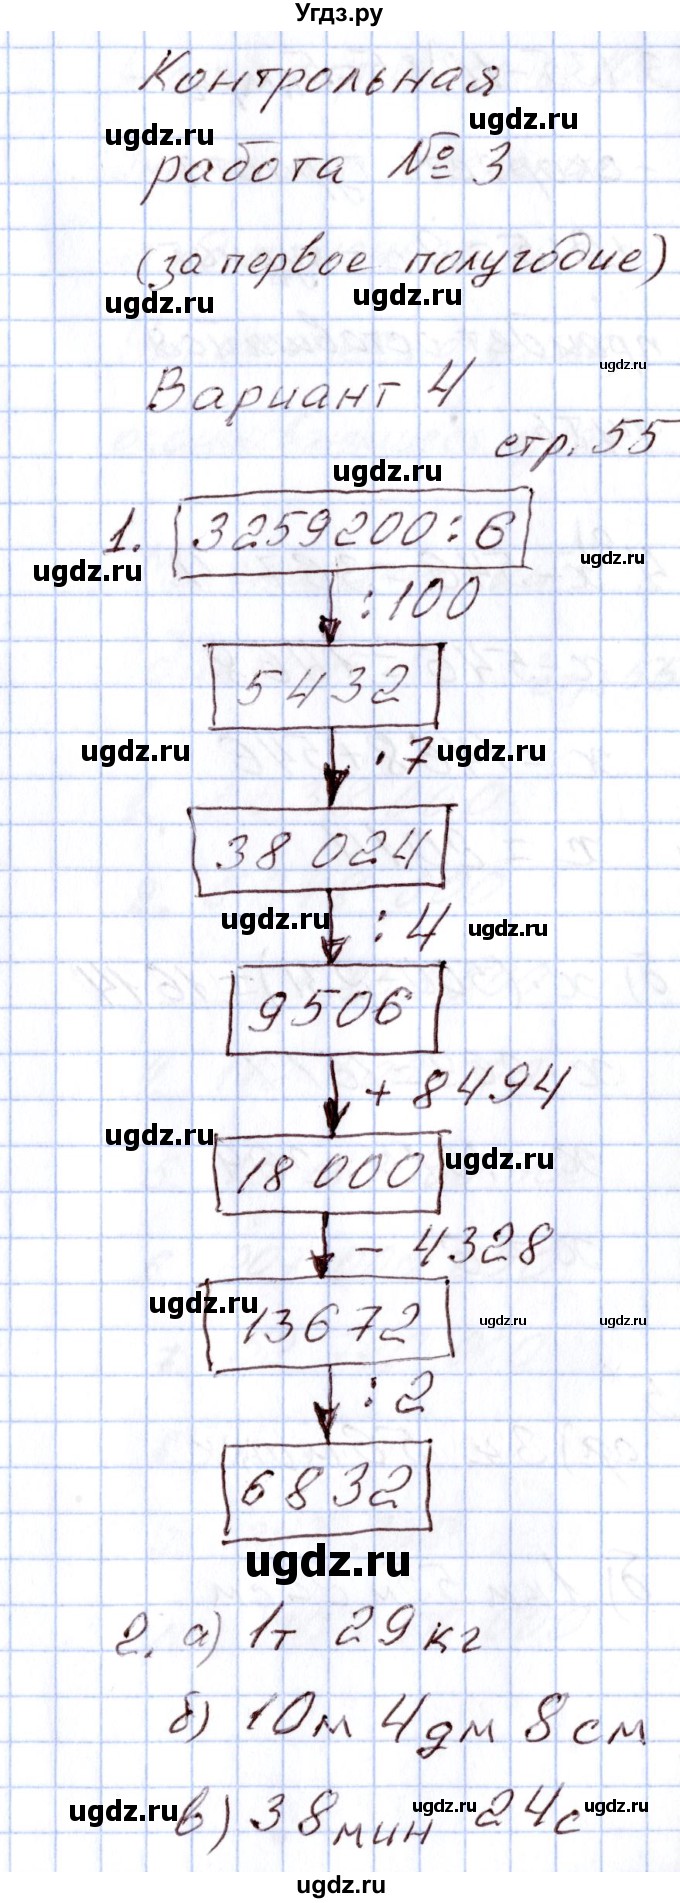 Угдз.ру
Контрольная
ugdz.ru ugdz.ru
работа № 3
(за первое полугодие)
ugdz.ru ugdz.ru
ugdz.ru
Вариант 4
стр. 55
ugdz.ru
1. 3259200:6
ugdz.ru ugdz.ru
:100
5432
ugdz.ru · 7 ugdz.ru
38 024
ugdz.ru : 4 ugdz.ru
9506
+ 8494
ugdz.ru
18 000 ugdz.ru
- 4328
ugdz.ru
13672 ugdz.ru ugdz.ru
: 2
6832
ugdz.ru
2. а) 1т 29кг
б) 10м 4дм 8см
ugdz.ru ugdz.ru ugdz.ru
в) 38мин 24с
ugdz.ru